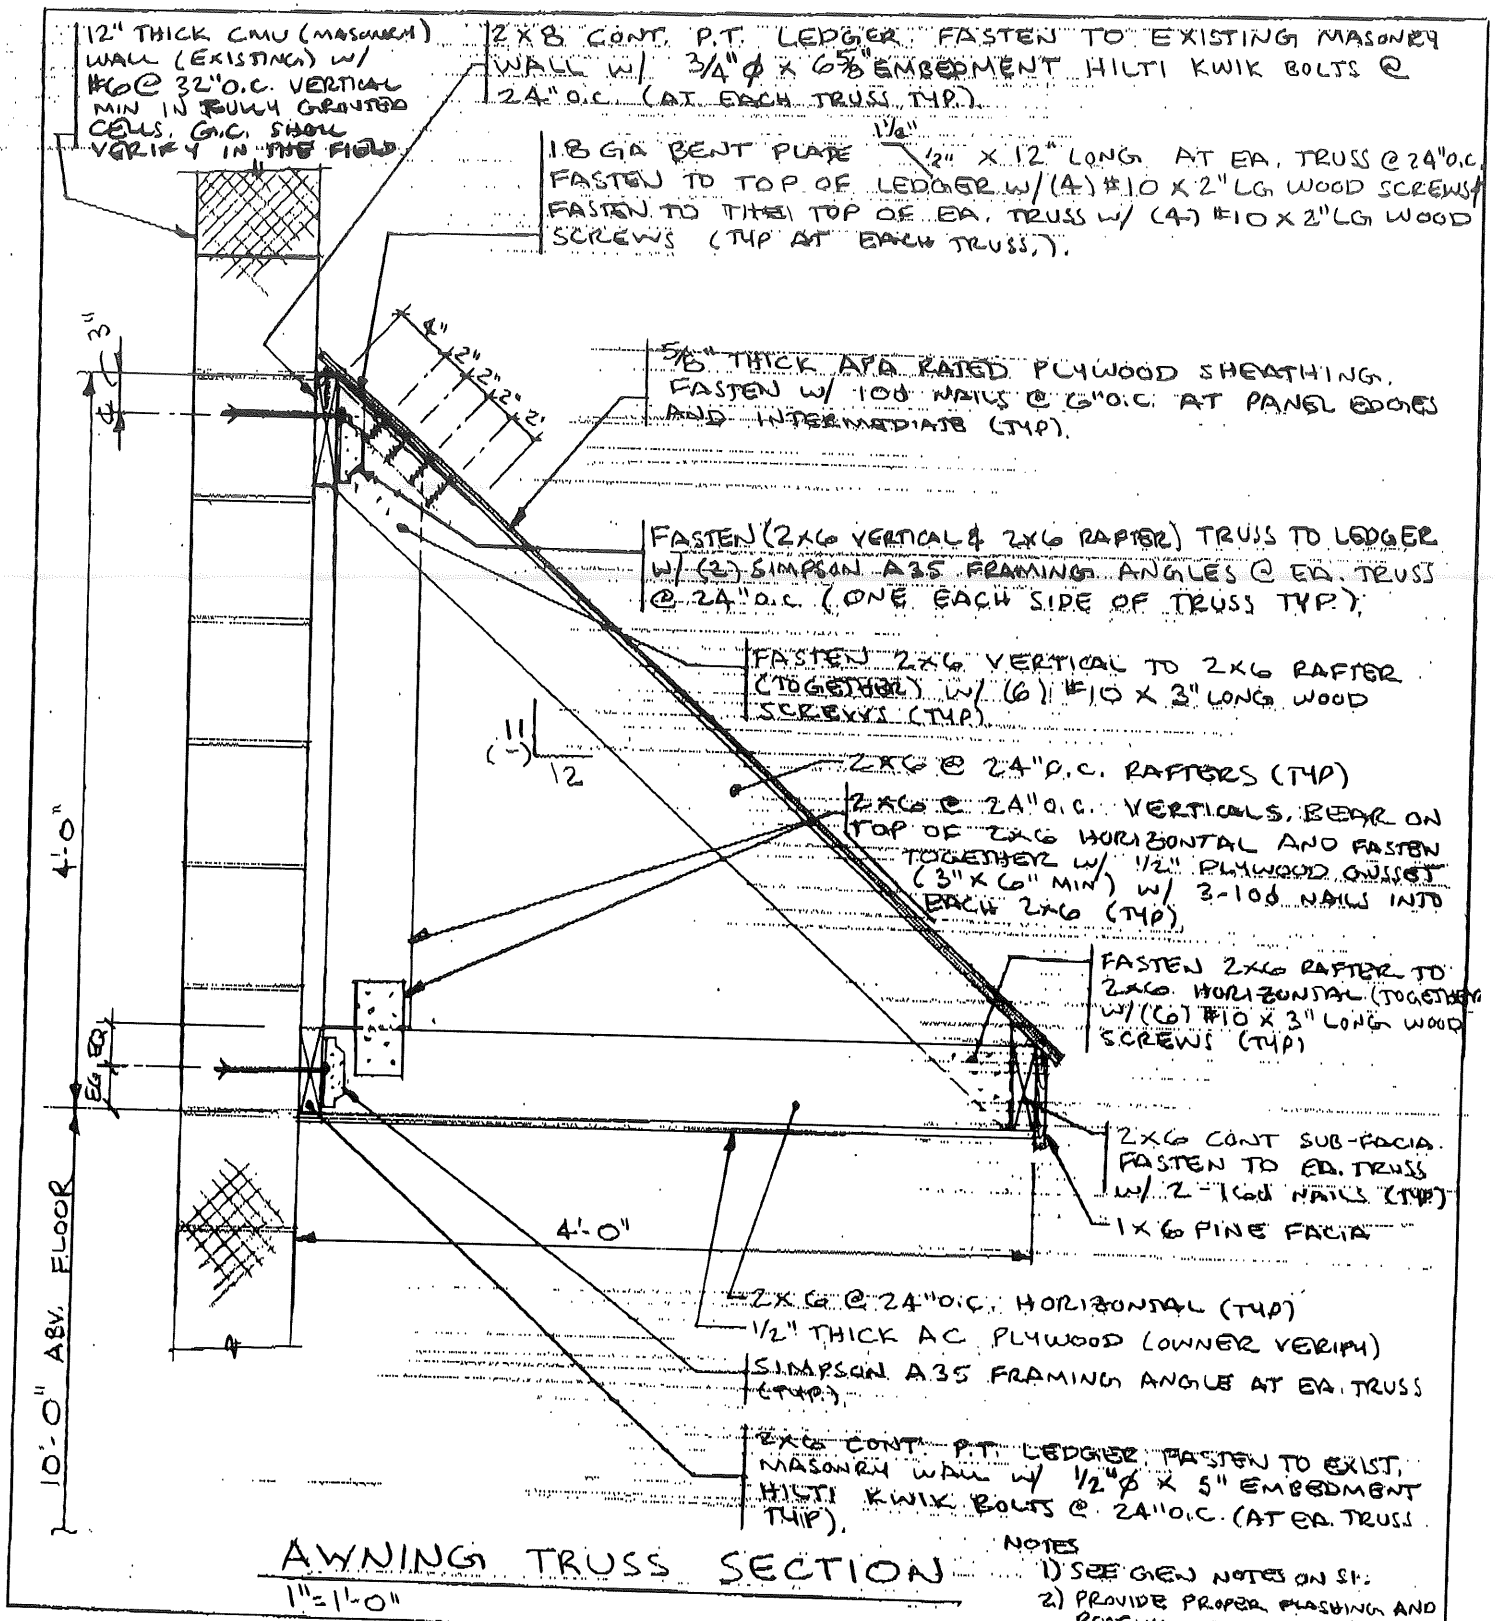 12" THICK CMU (MASONRY)
WALL (EXISTING) W/
#6 @ 32" O.C. VERTICAL
MIN IN FULLY GROUTED
CELLS. G.C. SHALL
VERIFY IN THE FIELD
2 X 8 CONT. P.T. LEDGER FASTEN TO EXISTING MASONRY
WALL W/ 3/4" Ø X 6 5/8" EMBEDMENT HILTI KWIK BOLTS @
24" O.C. (AT EACH TRUSS TYP.)
18 GA BENT PLATE 1 1/2" X 12" LONG AT EA. TRUSS @ 24" O.C.
FASTEN TO TOP OF LEDGER W/ (4) #10 X 2" LG WOOD SCREWS/
FASTEN TO THE TOP OF EA. TRUSS W/ (4) #10 X 2" LG WOOD
SCREWS (TYP AT EACH TRUSS.).
3"
4"
2"
2"
2"
5/8" THICK APA RATED PLYWOOD SHEATHING.
FASTEN W/ 10d NAILS @ 6" O.C. AT PANEL EDGES
AND INTERMEDIATE (TYP).
FASTEN (2X6 VERTICAL & 2X6 RAFTER) TRUSS TO LEDGER
W/ (2) SIMPSON A35 FRAMING ANGLES @ EA. TRUSS
@ 24" O.C. (ONE EACH SIDE OF TRUSS TYP.).
FASTEN 2X6 VERTICAL TO 2X6 RAFTER
(TOGETHER) W/ (6) #10 X 3" LONG WOOD
SCREWS (TYP).
11
(-)
12
2X6 @ 24" O.C. RAFTERS (TYP)
2X6 @ 24" O.C. VERTICALS. BEAR ON
TOP OF 2X6 HORIZONTAL AND FASTEN
TOGETHER W/ 1/2" PLYWOOD GUSSET
(3" X 6" MIN) W/ 3-10d NAILS INTO
EACH 2X6 (TYP).
4'-0"
FASTEN 2X6 RAFTER TO
2X6 HORIZONTAL (TOGETHER
W/ (6) #10 X 3" LONG WOOD
SCREWS (TYP)
EQ EQ
2X6 CONT SUB-FACIA.
FASTEN TO EA. TRUSS
W/ 2-16d NAILS (TYP)
1 X 6 PINE FACIA
4'-0"
10'-0" ABV. FLOOR
2X6 @ 24" O.C. HORIZONTAL (TYP)
1/2" THICK AC PLYWOOD (OWNER VERIFY)
SIMPSON A35 FRAMING ANGLE AT EA. TRUSS
(TYP.).
2X6 CONT. P.T. LEDGER FASTEN TO EXIST.
MASONRY WALL W/ 1/2" Ø X 5" EMBEDMENT
HILTI KWIK BOLTS @ 24" O.C. (AT EA. TRUSS
TYP).
AWNING TRUSS SECTION
1"=1'-0"
NOTES
1) SEE GEN NOTES ON S1.
2) PROVIDE PROPER FLASHING AND